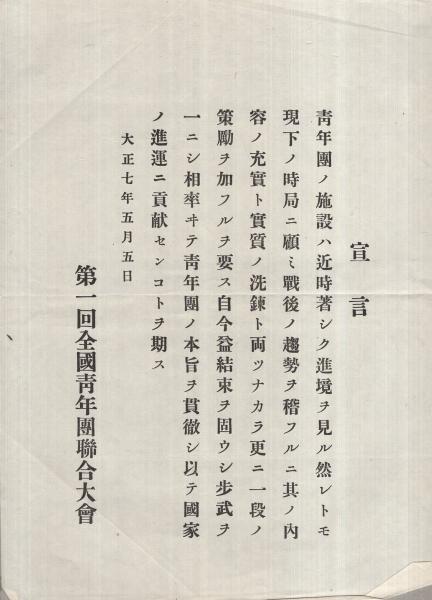 宣言
靑年團ノ施設ハ近時著シク進境ヲ見ル然レトモ
現下ノ時局ニ顧ミ戰後ノ趨勢ヲ稽フルニ其ノ內
容ノ充實ト實質ノ洗鍊ト兩ツナカラ更ニ一段ノ
策勵ヲ加フルヲ要ス自今益結束ヲ固ウシ步武ヲ
一ニシ相率ヰテ靑年團ノ本旨ヲ貫徹シ以テ國家
ノ進運ニ貢献センコトヲ期ス
大正七年五月五日
第一回全國靑年團聯合大會